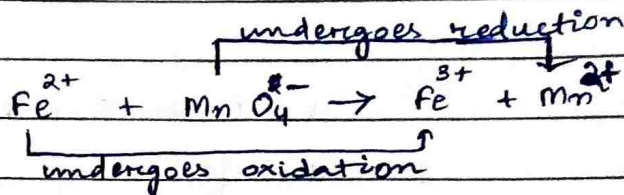 undergoes reduction
Fe²⁺ + MnO₄⁻ → Fe³⁺ + Mn²⁺
undergoes oxidation